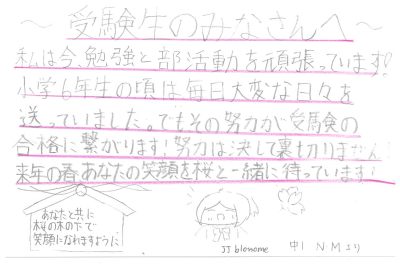 ～受験生のみなさんへ～
私は今、勉強と部活動を頑張っています!
小学6年生の頃は毎日大変な日々を
送っていました。でもその努力が受験の
合格に繋がります!努力は決して裏切りません!
来年の春あなたの笑顔を桜と一緒に待っています!
あなたと共に
桜の木の下で
笑顔になれますように
JJ.bloname
中1 N M より